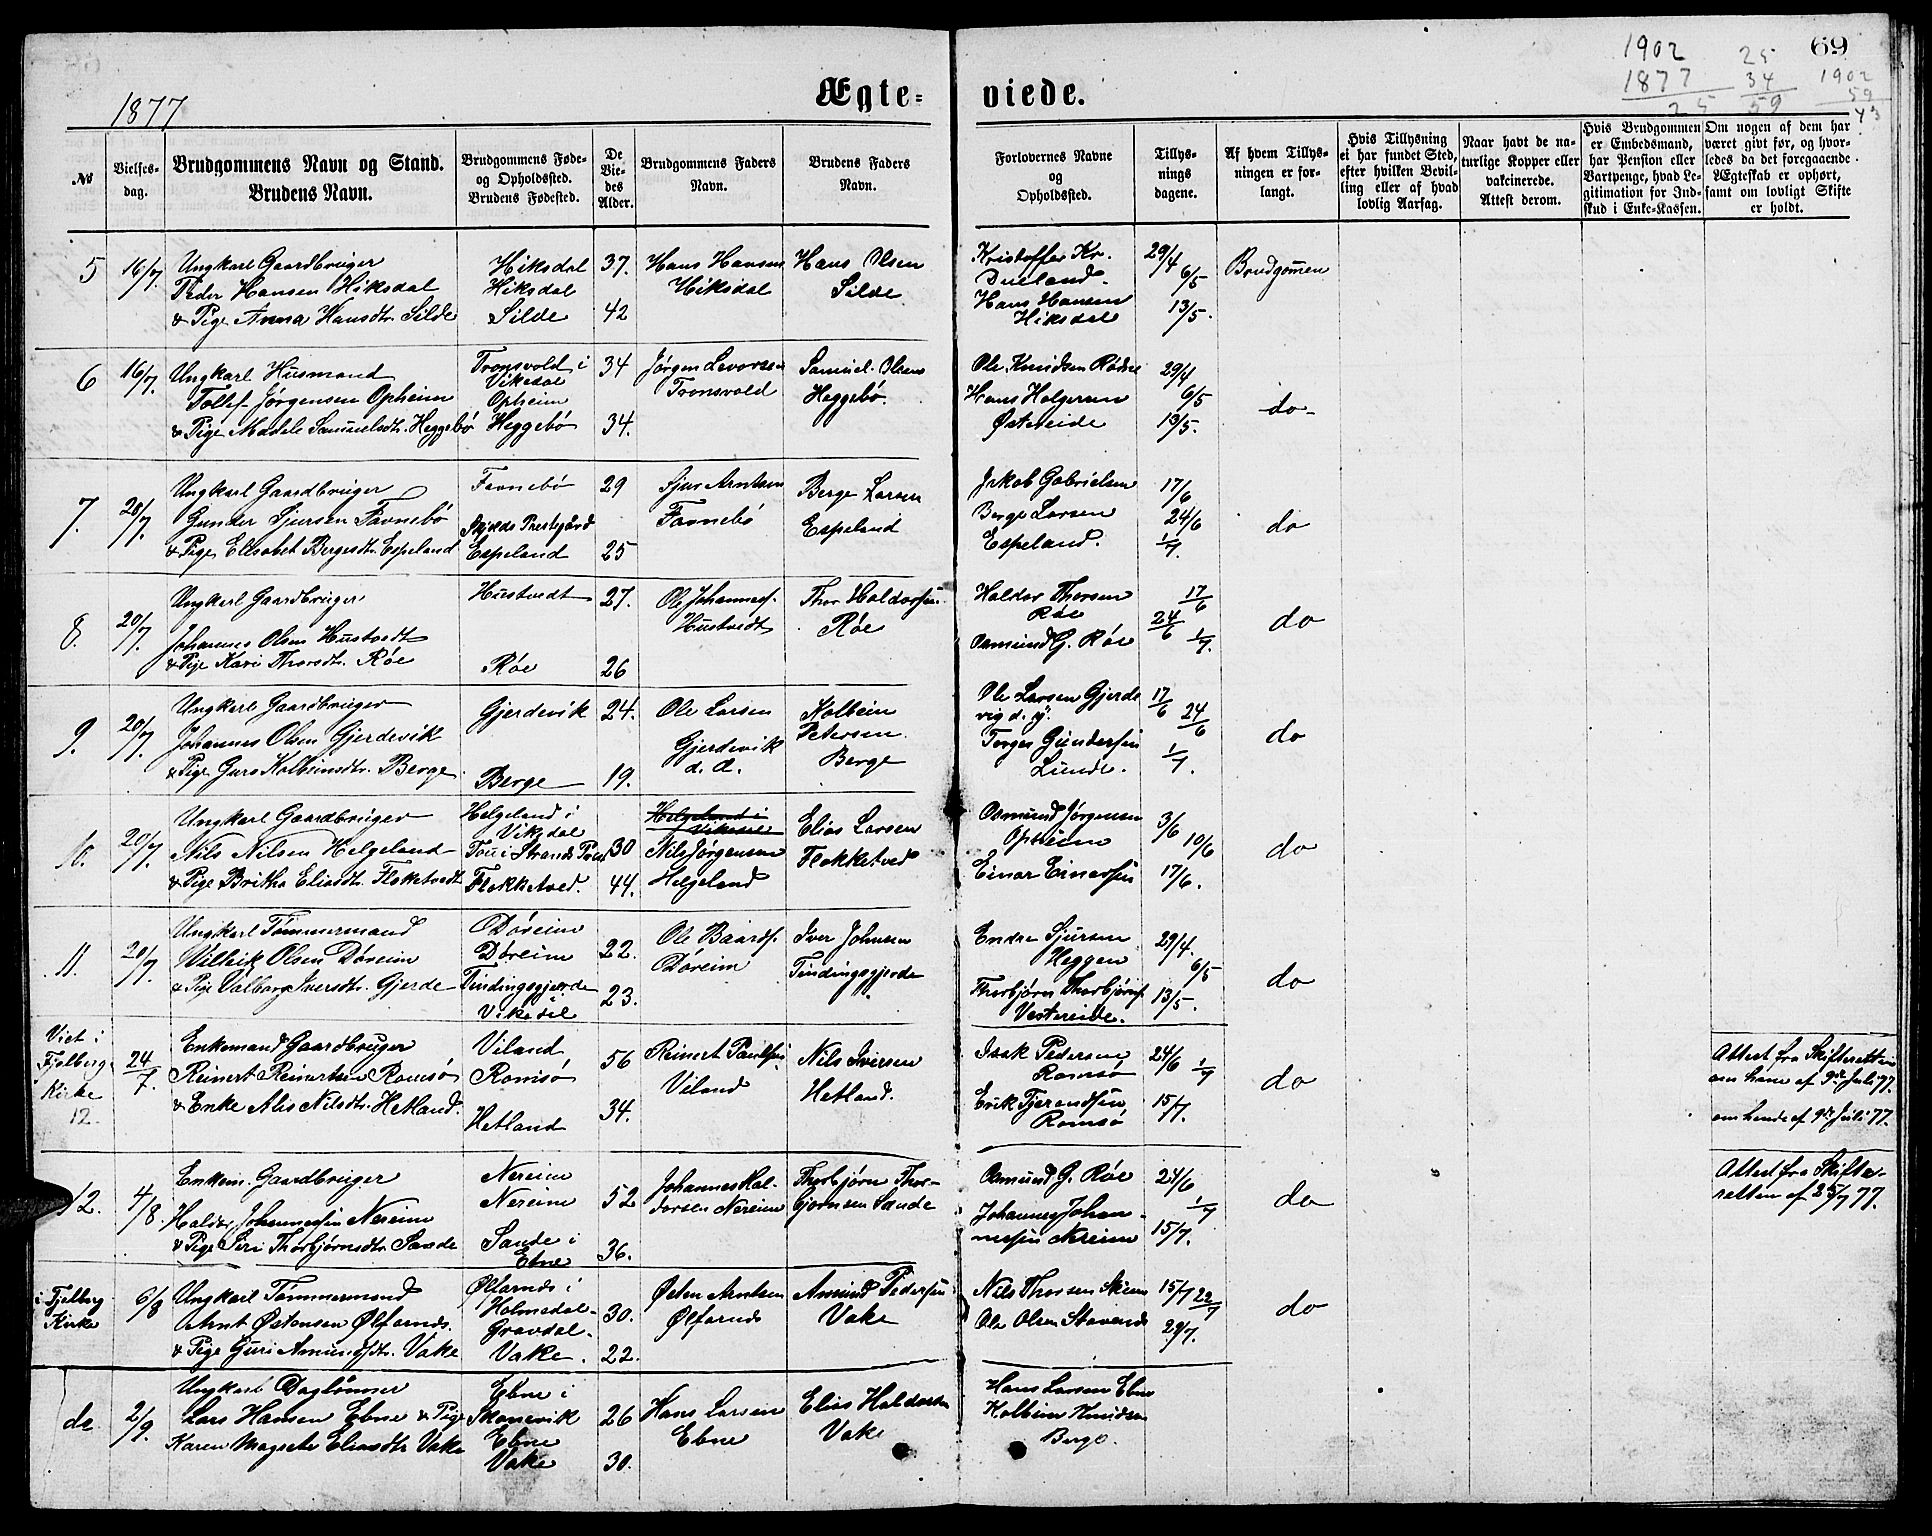 1877
Ægte- viede.
69
1902
1877
25
25
34
59
1902
59
43
No
Vielses-
dag.
Brudgommens Navn og Stand.
Brudens Navn.
Brudgommens Føde-
og Opholdssted.
Brudens Fødested.
De
Vie-
des
Alder.
Brudgommens Faders
Navn.
Brudens Faders
Navn.
Forlovernes Navne
og
Opholdssted.
Tillys-
nings
dagene.
Af hvem Tillys-
ningen er for-
langt.
Hvis Tillysning
ei har fundet Sted,
efter hvilken Bevil-
ling eller af hvad
lovlig Aarsag.
Naar havt de na-
turlige Kopper eller
vakcinerede.
Attest derom.
Hvis Brudgommen
er Embedsmand,
har Pension eller
Vartpenge, hvad Le-
gitimation for Ind-
skud i Enke-Kassen.
Om nogen af dem har
været givt før, og hvor-
ledes da det foregaaende
Ægteskab er ophørt,
samt om lovligt Skifte
er holdt.
5
16/7.
Ungkarl Gaardbruger
Peder Hansen Hiksdal
& Pige Anna Hansdtr. Silde
Hiksdal
Hiksdal
Silde
37.
42
Hans Hansen
Hiksdal
Hans Olsen
Silde
Kristoffer Kr.
Dueland
Hans Hansen
Hiksdal
29/4
6/5
13/5.
Brudgommen
6
16/7.
Ungkarl Husmand
Tollef Jørgensen Opheim
& Pige Madele Samuelsdtr. Heggebø
Tronsvold i
Vikedal
Opheim
Heggebø
34
34.
Jørgen Levorsen
Tronsvold
Samuel Olsen
Heggebø.
Ole Knudsen Rødne
Hans Helgesen
Østereide
29/4
6/5
13/5.
do
7.
20/7.
Ungkarl Gaardbruger
Gunder Sjursen Favnebø
& Pige Elisabet Bergesdtr. Espeland
Favnebø
Skjolds Prestegård
Espeland
29
25
Sjur Arntsen
Favnebø
Berge Larsen
Espeland
Jakob Gabrielsen
Berge Larsen
Espeland.
17/6
24/6
1/7.
do
8.
20/7.
Ungkarl Gaardbruger
Johannes Olsen Hustvedt
& Pige Kari Thorsdtr. Røe
Hustvedt
Røe
27.
26
Ole Johannesf.
Hustvedt
Thor Haldorsen
Røe
Haldor Thorsen
Røe
Osmund G. Røe
17/6
24/6
1/7.
do
9.
20/7.
Ungkarl Gaardbruger
Johannes Olsen Gjerdevik
& Pige Guro Kolbeinsdtr. Berge
Gjerdevik
Berge
24.
19.
Ole Larsen
Gjerdevik
d. æ.
Kolbein
Petersen
Berge
Ole Larsen Gjerde
vig d. y.
Torger Gundersen
Lunde.
17/6
24/6
1/7.
do
10.
20/7.
Ungkarl Gaardbruger
Nils Nilsen Helgeland
& Pige Britha Eliasdtr. Flokketvedt
Helgeland i
Vikedal
Tou i Strands Præst
Flokketved.
30
44.
Helgeland i
Vikedal
Nils Jørgensen
Helgeland
Elias Larsen
Flokketved
Osmund Jørgensen
Opheim
Einar Einarsen
3/6
10/6
17/6.
do
11.
20/7.
Ungkarl Tømmermand
Villeik Olsen Døreim
& Pige Valborg Iversdtr. Gjerde
Døreim
Døreim
Tindingsgjerde
Vikedal
22.
23.
Ole Baardf.
Døreim
Iver Johnsen
Tindingsgjerde
Endre Sjursen
Heggen
Thorbjørn Thorbjørnf.
Vestreide.
29/4.
6/5
13/5.
do
Viet i
Fjelberg
Kirke
12.
24/7.
Enkemand Gaardbruger
Reinert Reinertsen Romsø
& Enke Alis Nilsdtr. Hetland.
Viland
Romsø
Hetland
56
34.
Reinert Paulsen
Viland
Nils Iversen
Hetland.
Isak Pedersen
Romsø
Erik Tjerandsen
Romsø
24/6
1/7
15/7.
do
Attest fra Skifteretten
om ham af 9de Juli 77.
om hende af 9de Juli 77.
12.
4/8.
Enkem. Gaardbruger
Haldor Johannesen Nereim
& Pige Siri Thorbjørnsdtr. Sande
Nereim
Nereim
Sande i
Ebne
52
36.
Johannes Hal-
dorsen Nereim
Thorbjørn Thor-
bjørnsen Sande
Osmund G. Røe
Johannes Johan-
nesen Nereim
24/6
1/7
15/7.
do
Attest fra Skifte-
retten af 25/7 77.
i Fjelberg
Kirke
6/8
Ungkarl Tømmermand
Arnt Østensen Ølfarnds
& Pige Guri Amundsdtr. Vake
Ølfarnds i
Holmedal
Gravdal
Vake.
30.
22.
Østen Arntsen
Ølfarnds
Amund Pedersen
Vake
Nils Thorsen Skiem
Ole Olsen Stavends
15/7
22/7
29/7.
do
do.
2/9.
Ungkarl Daglønner
Lars Hansen Ebne & Pige
Karen Magrete Eliasdtr. Vake
Ebne i
Skonevik
Ebne
Vake
26
30.
Hans Larsen
Ebne
Elias Haldorsen
Vake
Hans Larsen Ebne
Kolbein Knudsen
Berge.